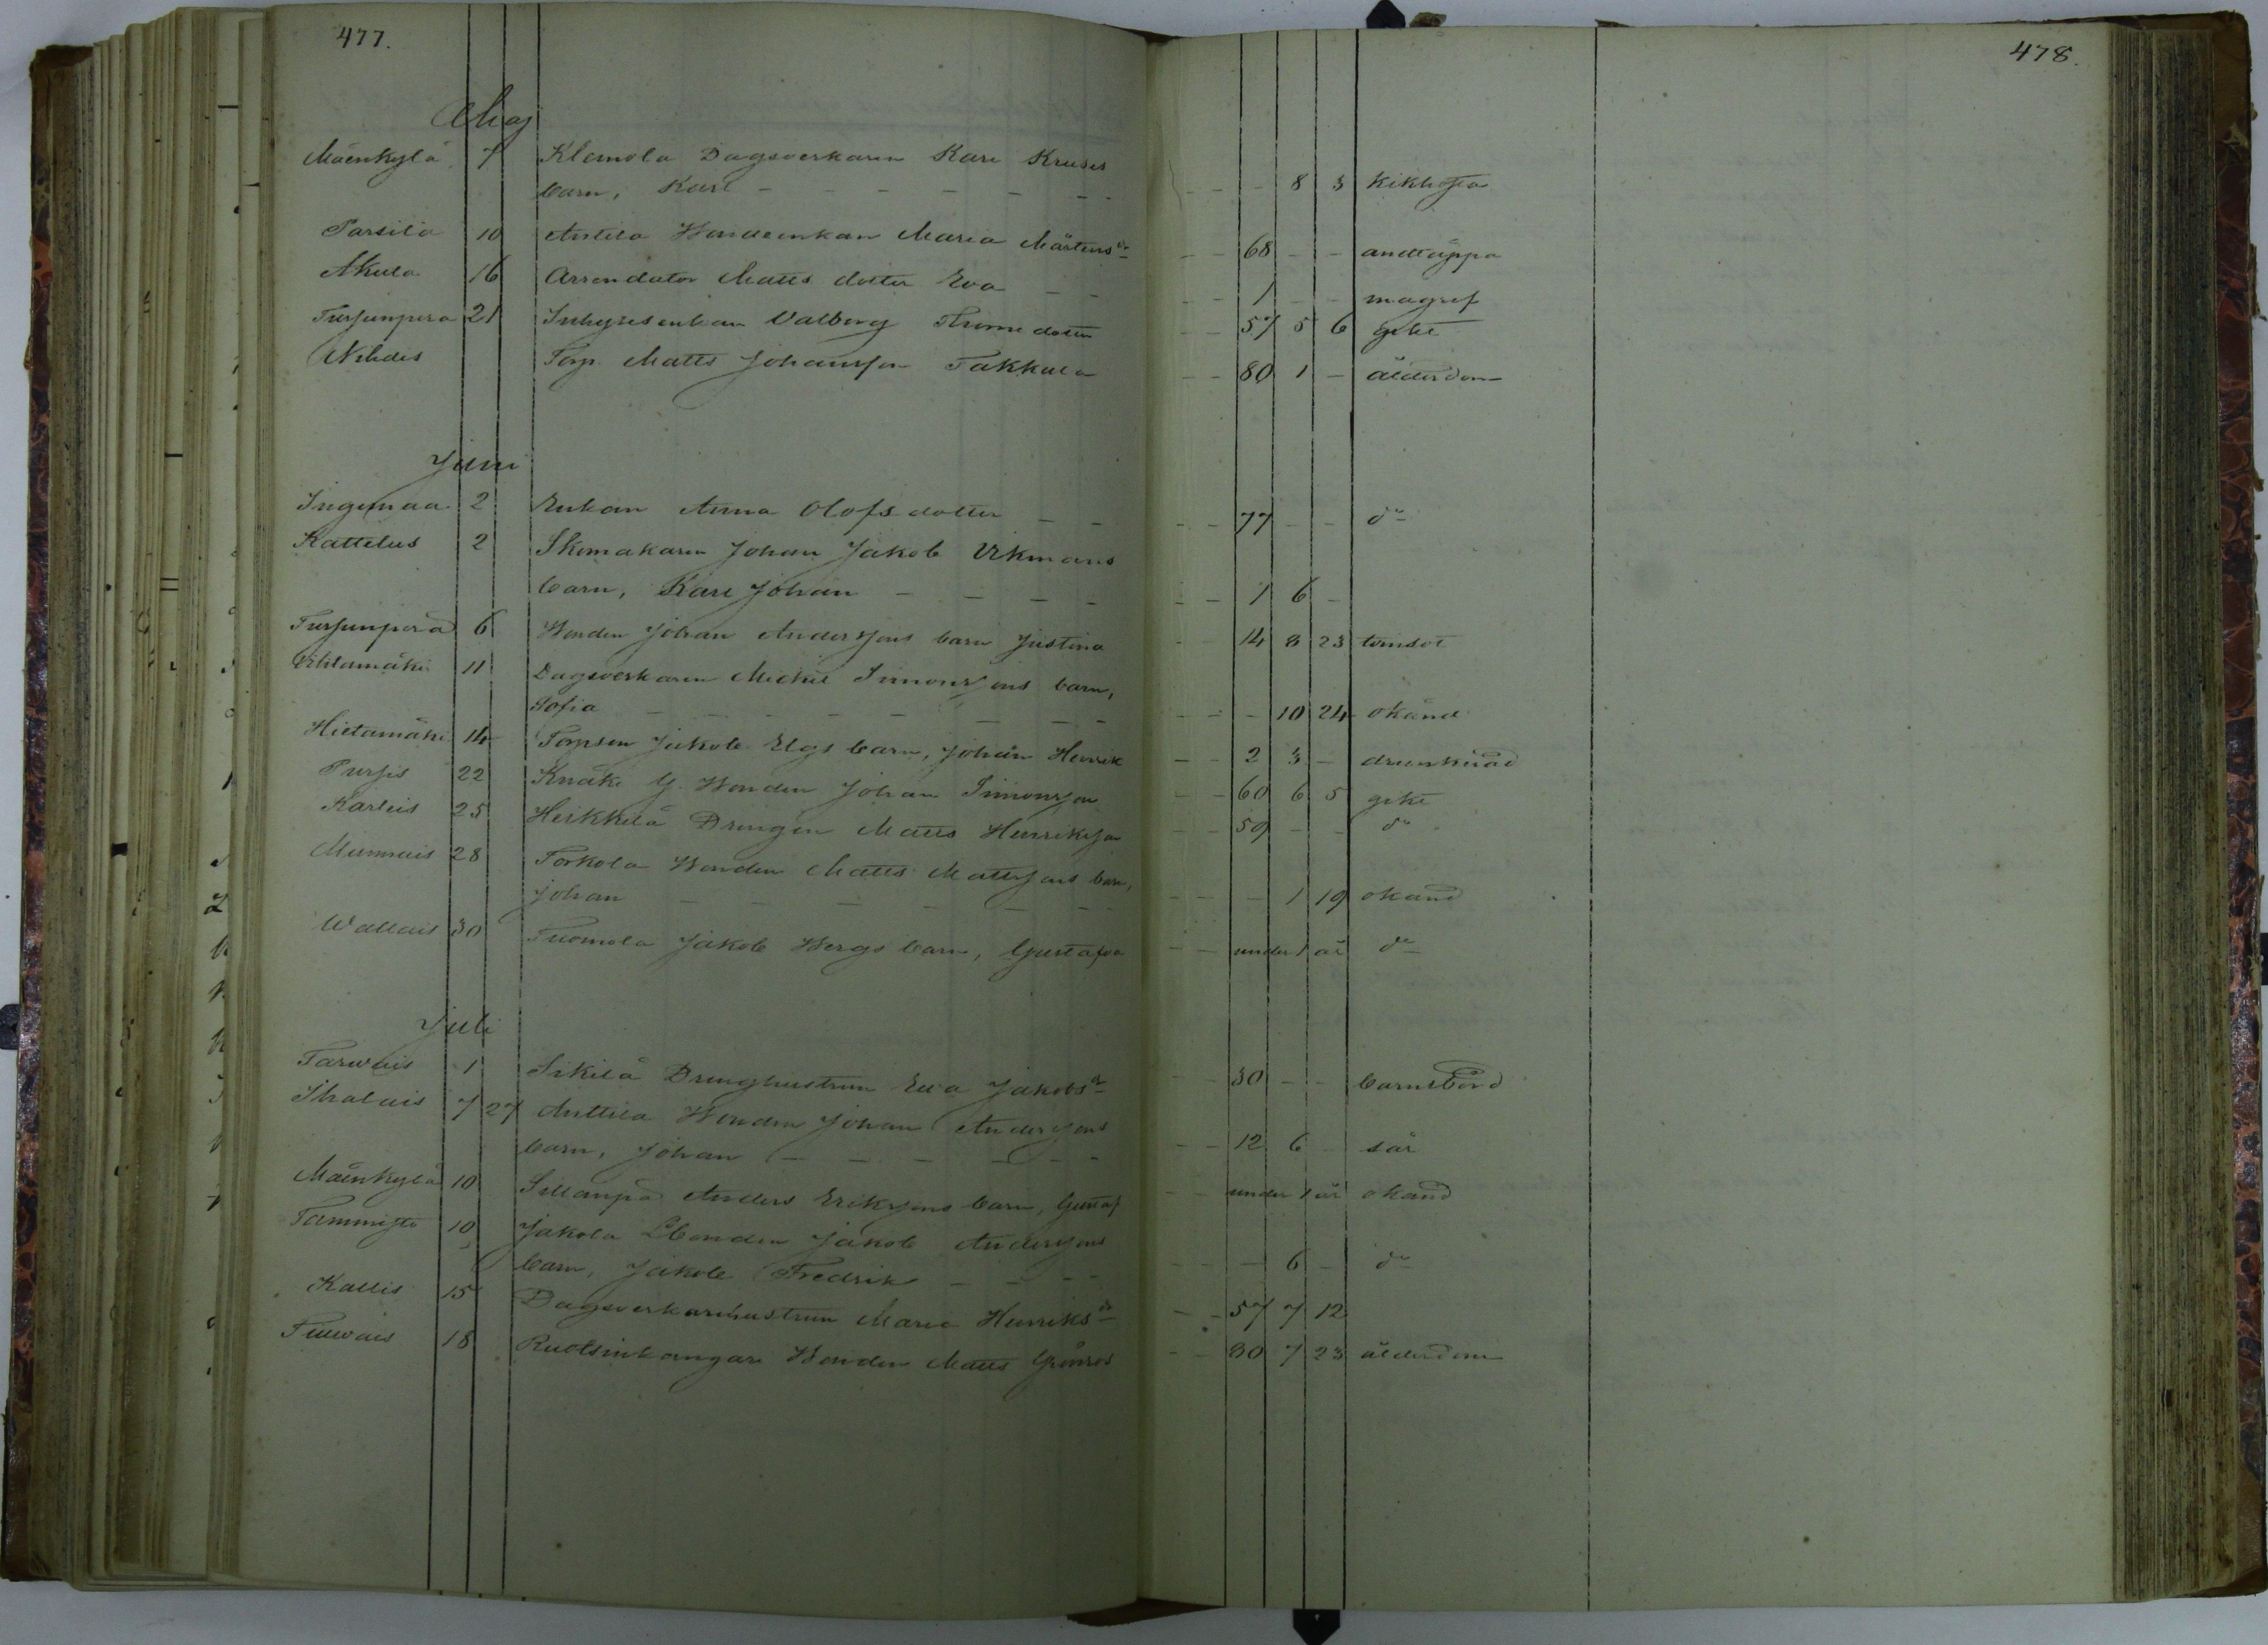 477.
478.
Maj
Mäenkylä 7 Klemola Dagsverkaren Karl Kruses
barn, Karl - - - - - - - - 8 3 kikhosta
Parsila 10 Antila Bondeenkan Maria Mårtensdr - - 68 - - andtäppa
Akula 16 Arrendator Matts dotter Eva - - - - 1 - - magref
Turjunperä 21 Inhysesenkan Valborg Thome dotter - - 57 5 6 gikt
Nihdis Torp. Matts Johansson Takkula - - 80 1 - ålderdom
Juni
Ingemaa 2 Enkan Anna Olofsdotter - - - - 77 - - do
Kattelus 2 Skomakaren Johan Jakob Vikmans
barn, Karl Johan - - - - - - 1 6 -
Turjunperä 6 Bonden Johan Anderssons barn Justina - - 14 8 23 tvinsot
Vihlamäki 11 Dagsverkaren Mickel Simonssons barn,
Sofia - - - - - - - - - - - 10 24 okänd
Hietamäki 14 Torpson Jakob Elgs barn, Johan Henrik - - 2 3 - drunknad
Pursis 22 Knäke Y. Bonden Johan Simonsson - - 60 6 5 gikt
Karleis 25 Heikkilä Drengen Matts Henriksson - - 59 - - do
Mummis 28 Torkola Bonden Matts Mattssons barn,
Johan - - - - - - - - - 1 19 okänd
Wallais 30 Tuomola Jakob Bergs barn, Gustafva - - under 1 år do
Juli
Tarwais 1 Sikilä Drenghustrun Eva Jakobsdr - - 30 - - barnsbörd
Ihalais 7 27 Anttila Bonden Johan Anderssons
barn, Johan - - - - - - - 12 6 - sår
Mäenkylä 10 Sillanpä Anders Erikssons barn, Gustaf - - under 1 år okänd
Tammisto 10 Jakola Bonden Jakob Anderssons
barn, Jakob Fredrik - - - - - - - 6 - do
Kallis 15 Dagsverkarehustrun Maria Henriksdr - - 57 7 12
Ruotsinkangare Bonden Matts Grönros
18 - - 80 7 23 ålderdom